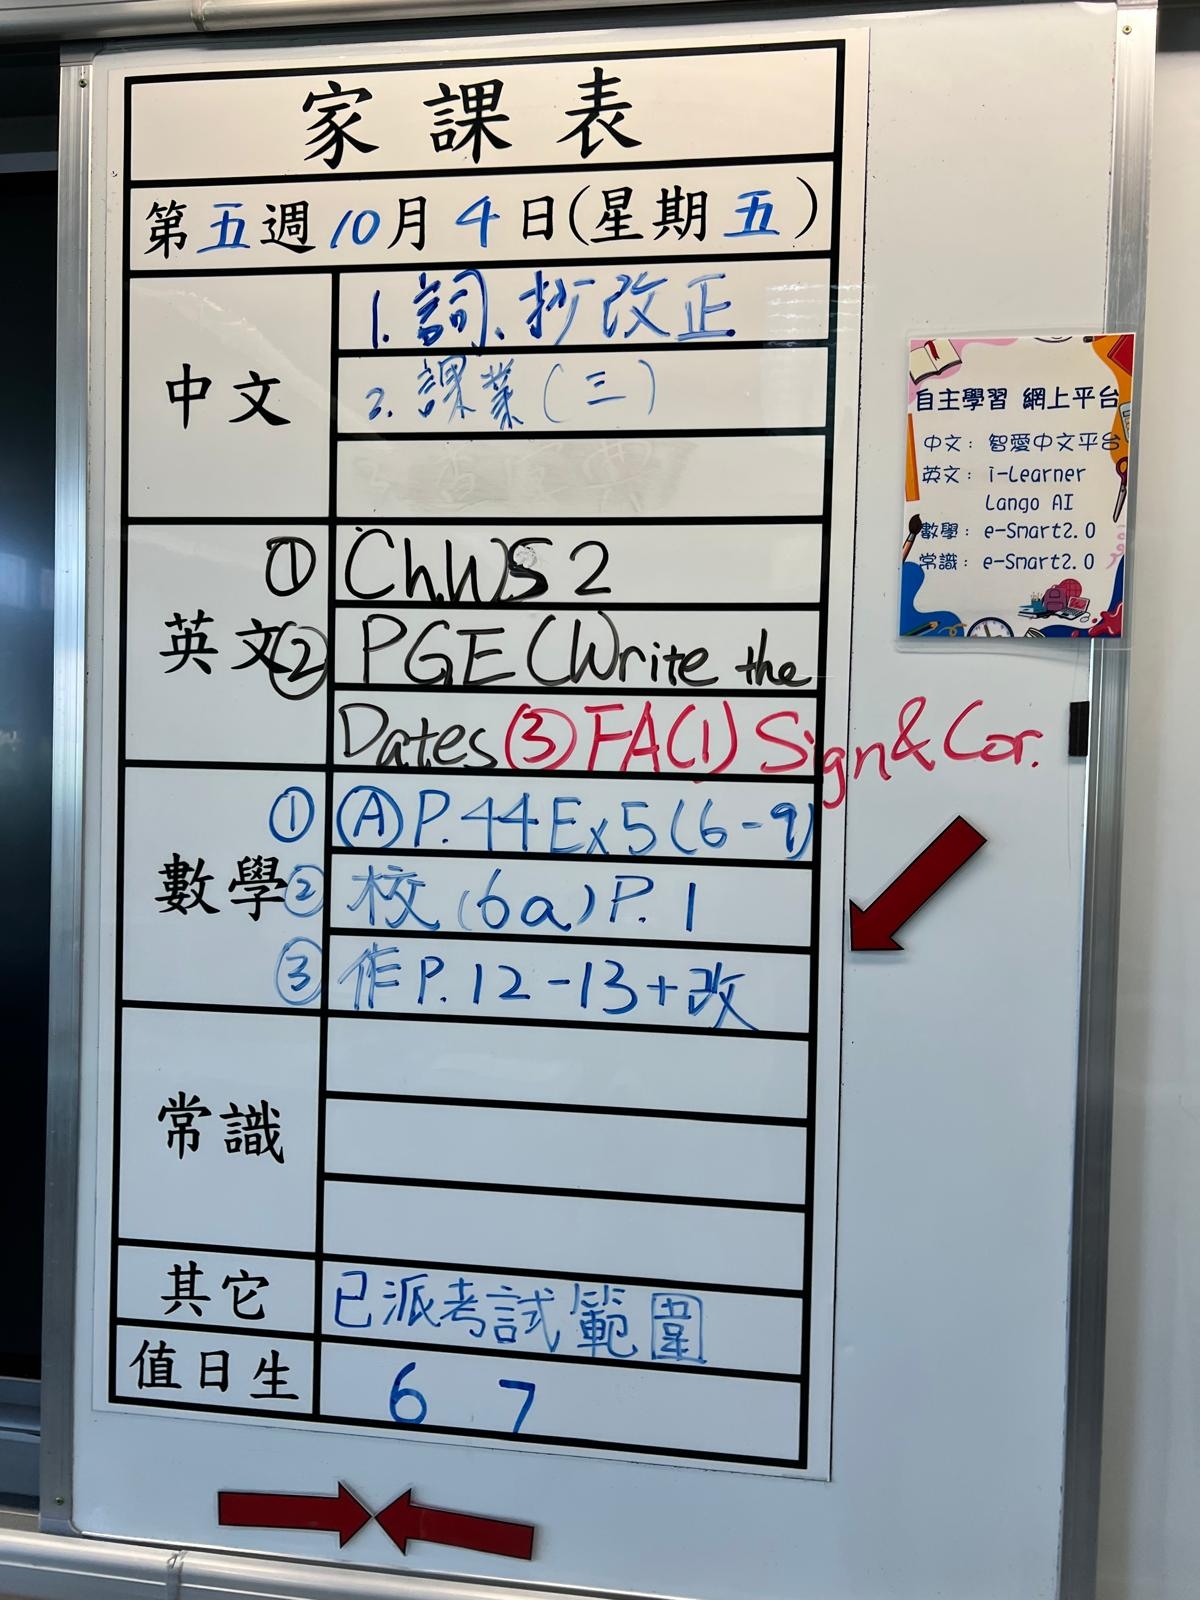 家課表
第五週10月4日(星期五)
中文
1. 詞、抄改正
2. 課業(三)
英文
① Ch.WS 2
② PGE (Write the
Dates ③ FA(1) Sign & Cor.
數學
① Ⓐ P.44 Ex 5 (6-9)
② 校(6a) P.1
③ 作 P.12-13+改
常識
其它
已派考試範圍
值日生
6 7
自主學習 網上平台
中文：智愛中文平台
英文：i-Learner
Lango AI
數學：e-Smart2.0
常識：e-Smart2.0